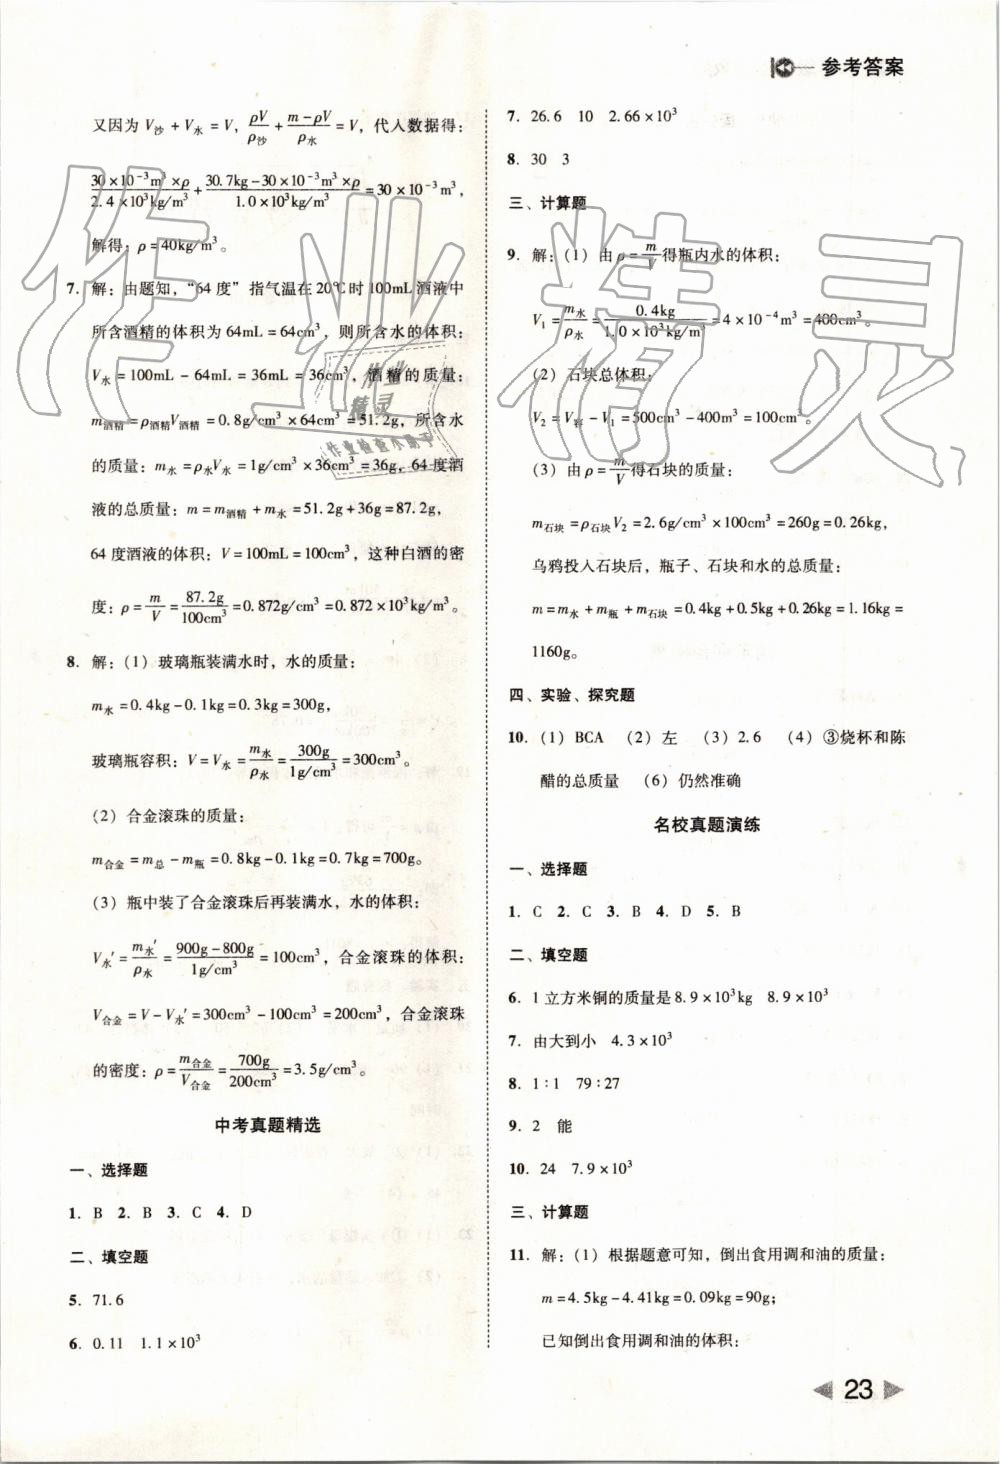 参考答案
又因为 V沙 + V水 = V, ρV/ρ沙 + (m-ρV)/ρ水 = V, 代人数据得:
(30×10⁻³m³×ρ)/(2.4×10³kg/m³) + (30.7kg-30×10⁻³m³×ρ)/(1.0×10³kg/m³) = 30×10⁻³m³,
解得: ρ=40kg/m³。
7. 解: 由题知, “64度”指气温在20℃时100mL酒液中
所含酒精的体积为64mL=64cm³, 则所含水的体积:
V水=100mL-64mL=36mL=36cm³, 酒精的质量:
m酒精=ρ酒精V酒精=0.8g/cm³×64cm³=51.2g, 所含水
的质量: m水=ρ水V水=1g/cm³×36cm³=36g, 64度酒
液的总质量: m=m酒精+m水=51.2g+36g=87.2g,
64度酒液的体积: V=100mL=100cm³, 这种白酒的密
度: ρ=m/V=87.2g/100cm³=0.872g/cm³=0.872×10³kg/m³。
8. 解: (1) 玻璃瓶装满水时, 水的质量:
m水=0.4kg-0.1kg=0.3kg=300g,
玻璃瓶容积: V=V水=m水/ρ水=300g/1g/cm³=300cm³;
(2) 合金滚珠的质量:
m合金=m总-m瓶=0.8kg-0.1kg=0.7kg=700g。
(3) 瓶中装了合金滚珠后再装满水, 水的体积:
V水′=m水′/ρ水=(900g-800g)/1g/cm³=100cm³, 合金滚珠的体积:
V合金=V-V水′=300cm³-100cm³=200cm³, 合金滚珠
的密度: ρ=m合金/V合金=700g/200cm³=3.5g/cm³。
中考真题精选
一、选择题
1. B 2. B 3. C 4. D
二、填空题
5. 71.6
6. 0.11 1.1×10³
7. 26.6 10 2.66×10³
8. 30 3
三、计算题
9. 解: (1) 由ρ=m/V得瓶内水的体积:
V₁=m水/ρ水=0.4kg/1.0×10³kg/m³=4×10⁻⁴m³=400cm³。
(2) 石块总体积:
V₂=V容-V₁=500cm³-400m³=100cm³。
(3) 由ρ=m/V得石块的质量:
m石块=ρ石块V₂=2.6g/cm³×100cm³=260g=0.26kg,
乌鸦投入石块后, 瓶子、石块和水的总质量:
m=m水+m瓶+m石块=0.4kg+0.5kg+0.26kg=1.16kg=
1160g。
四、实验、探究题
10. (1) BCA (2) 左 (3) 2.6 (4) ③烧杯和陈
醋的总质量 (6) 仍然准确
名校真题演练
一、选择题
1. C 2. C 3. B 4. D 5. B
二、填空题
6. 1立方米铜的质量是8.9×10³kg 8.9×10³
7. 由大到小 4.3×10³
8. 1∶1 79∶27
9. 2 能
10. 24 7.9×10³
三、计算题
11. 解: (1) 根据题意可知, 倒出食用调和油的质量:
m=4.5kg-4.41kg=0.09kg=90g;
已知倒出食用调和油的体积:
23
作业精灵
作业
精灵
作业检查小助手